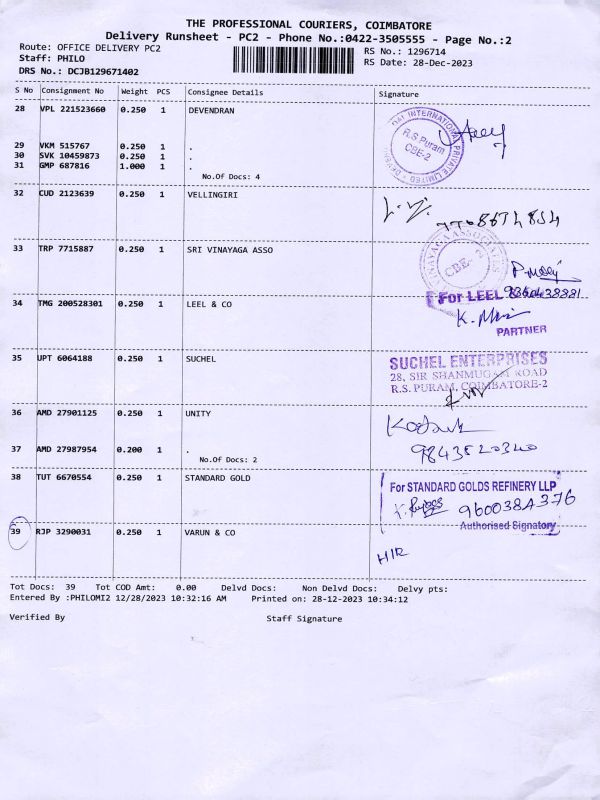 THE PROFESSIONAL COURIERS, COIMBATORE
Delivery Runsheet - PC2 - Phone No.:0422-3505555 - Page No.:2
Route: OFFICE DELIVERY PC2
RS No.: 1296714
Staff: PHILO
RS Date: 28-Dec-2023
DRS No.: DCJB129671402
S No Consignment No Weight PCS Consignee Details Signature
28 VPL 221523660 0.250 1 DEVENDRAN
INTERNATIONAL PRIVATE LIMITED
R.S Puram
CBE-2
29 VKM 515767 0.250 1 .
30 SVK 10459873 0.250 1 .
31 GMP 687816 1.000 1 .
No.Of Docs: 4
32 CUD 2123639 0.250 1 VELLINGIRI
33 TRP 7715887 0.250 1 SRI VINAYAGA ASSO
VINAYAGA ASSOCIATES
CBE-2
For LEEL &
34 TMG 200528301 0.250 1 LEEL & CO
PARTNER
35 UPT 6064188 0.250 1 SUCHEL
SUCHEL ENTERPRISES
28, SIR SHANMUGAM ROAD
R.S. PURAM, COIMBATORE-2
36 AMD 27901125 0.250 1 UNITY
37 AMD 27987954 0.200 1 .
9843520340
No.Of Docs: 2
38 TUT 6670554 0.250 1 STANDARD GOLD
For STANDARD GOLDS REFINERY LLP
9600384376
Authorised Signatory
39 RJP 3290031 0.250 1 VARUN & CO
Tot Docs: 39 Tot COD Amt: 0.00 Delvd Docs: Non Delvd Docs: Delvy pts:
Entered By :PHILOMI2 12/28/2023 10:32:16 AM Printed on: 28-12-2023 10:34:12
Verified By Staff Signature